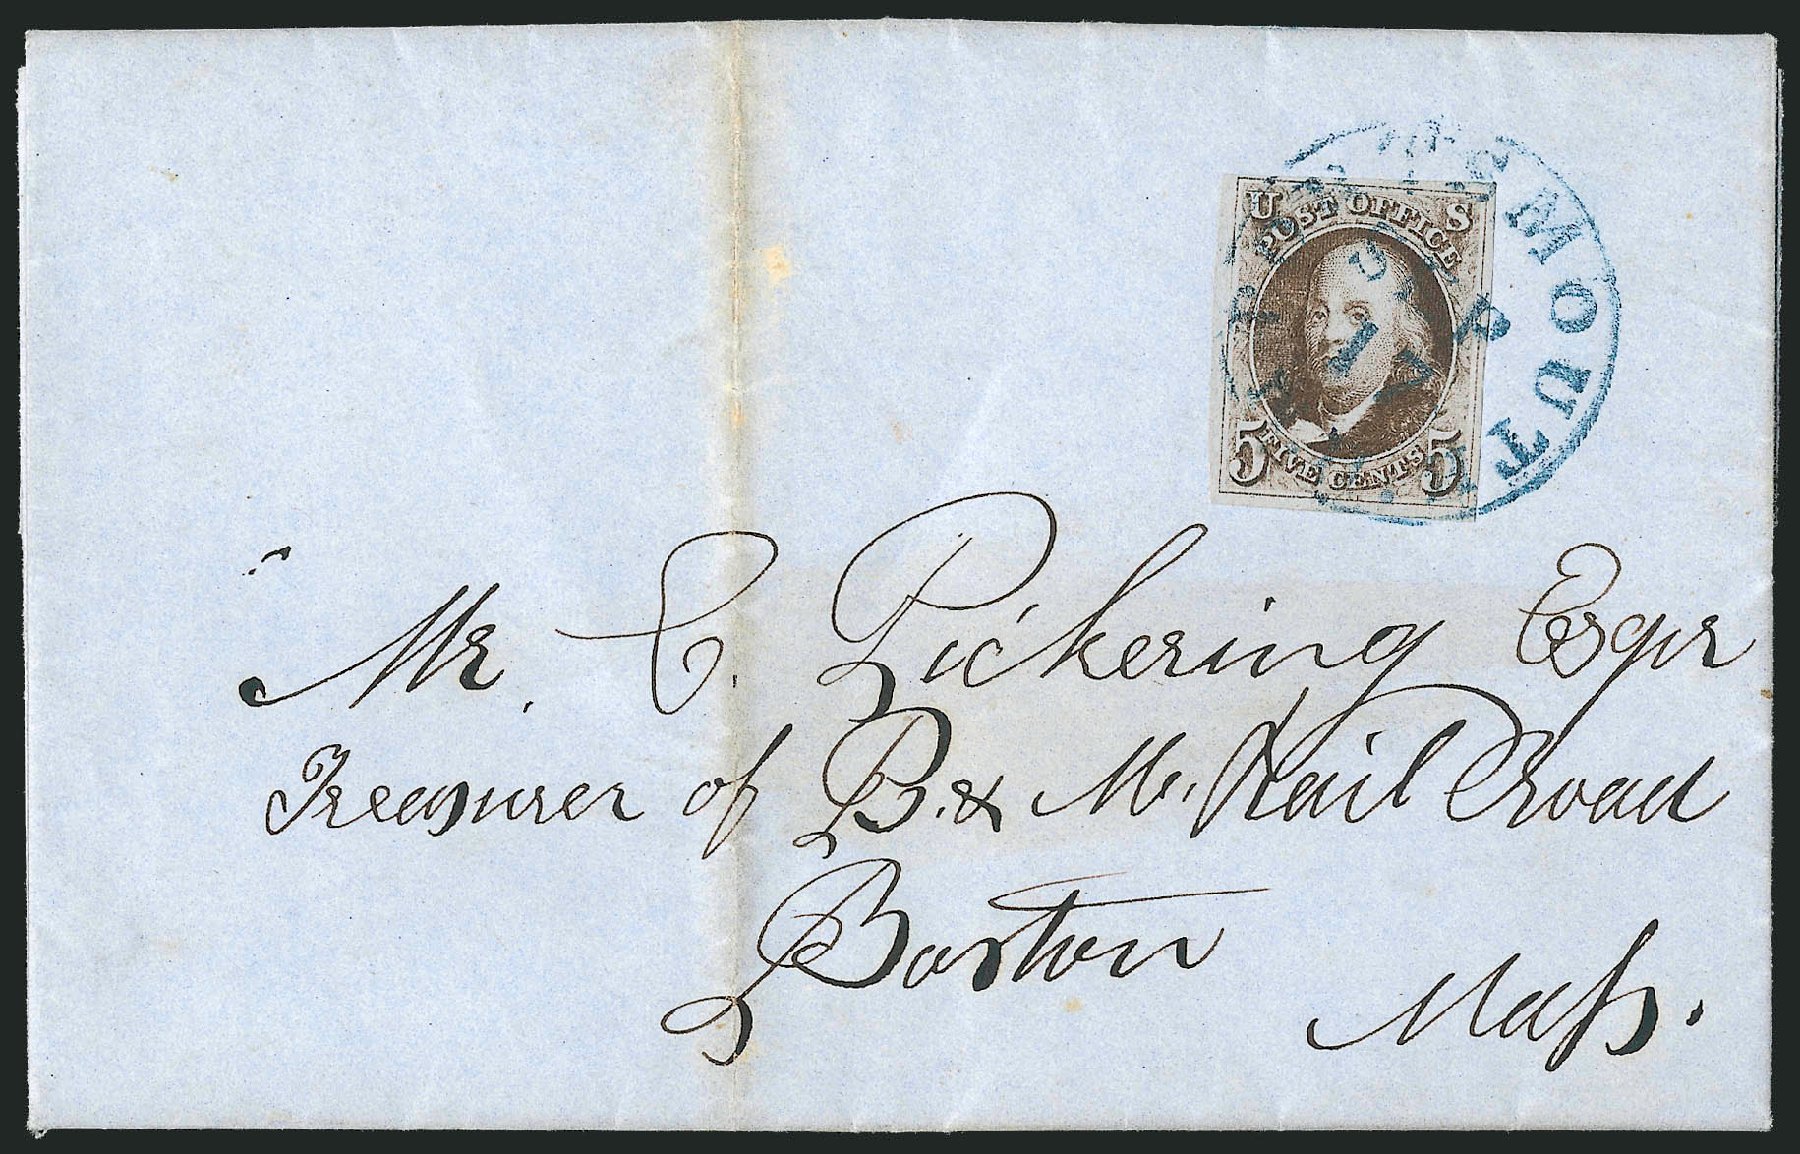 U S
POST OFFICE
5 FIVE CENTS 5
PORTSMOUTH
SEP
17
Mr. C. Pickering Esqr
Treasurer of B. & M. Rail Road
Boston
Mass.